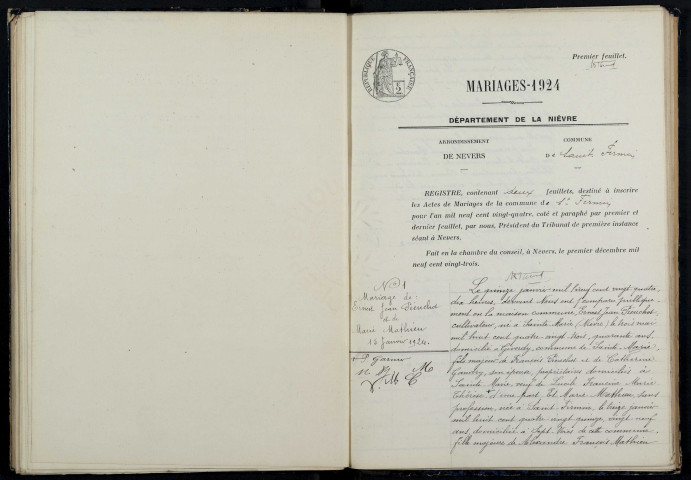 Premier feuillet.
RÉPUBLIQUE FRANÇAISE
MARIAGES-1924
DÉPARTEMENT DE LA NIÈVRE
ARRONDISSEMENT
DE NEVERS
COMMUNE
DE Saint Firmin
REGISTRE, contenant deux feuillets, destiné à inscrire
les Actes de Mariages de la commune de St Firmin
pour l'an mil neuf cent vingt-quatre, coté et paraphé par premier et
dernier feuillet, par nous, Président du Tribunal de première instance
séant à Nevers.
Fait en la chambre du conseil, à Nevers, le premier décembre mil
neuf cent vingt-trois.
No 1
Mariage de
Ernest Jean
et de
Marie Mathieu
15 Janvier 1924.
Le quinze janvier mil neuf cent vingt quatre
dix heures, devant Nous ont comparu publique-
ment en la maison commune, Ernest Jean
cultivateur, né à Sainte-Marie (Nièvre) le trois mai
mil huit cent quatre-vingt trois, quarante ans
domicilié à commune de Sainte-Marie,
fils majeur de François et de Catherine
Gaudry, son épouse, propriétaires domiciliés à
Sainte Marie, veuf de Lucile Francine Marie
Thérèse d'une part. Et Marie Mathieu, sans
profession, née à Saint Firmin, le treize janvier
mil huit cent quatre vingt quinze, vingt neuf
ans domiciliée à Sept Voies de cette commune
fille majeure de Alexandre François Mathieu